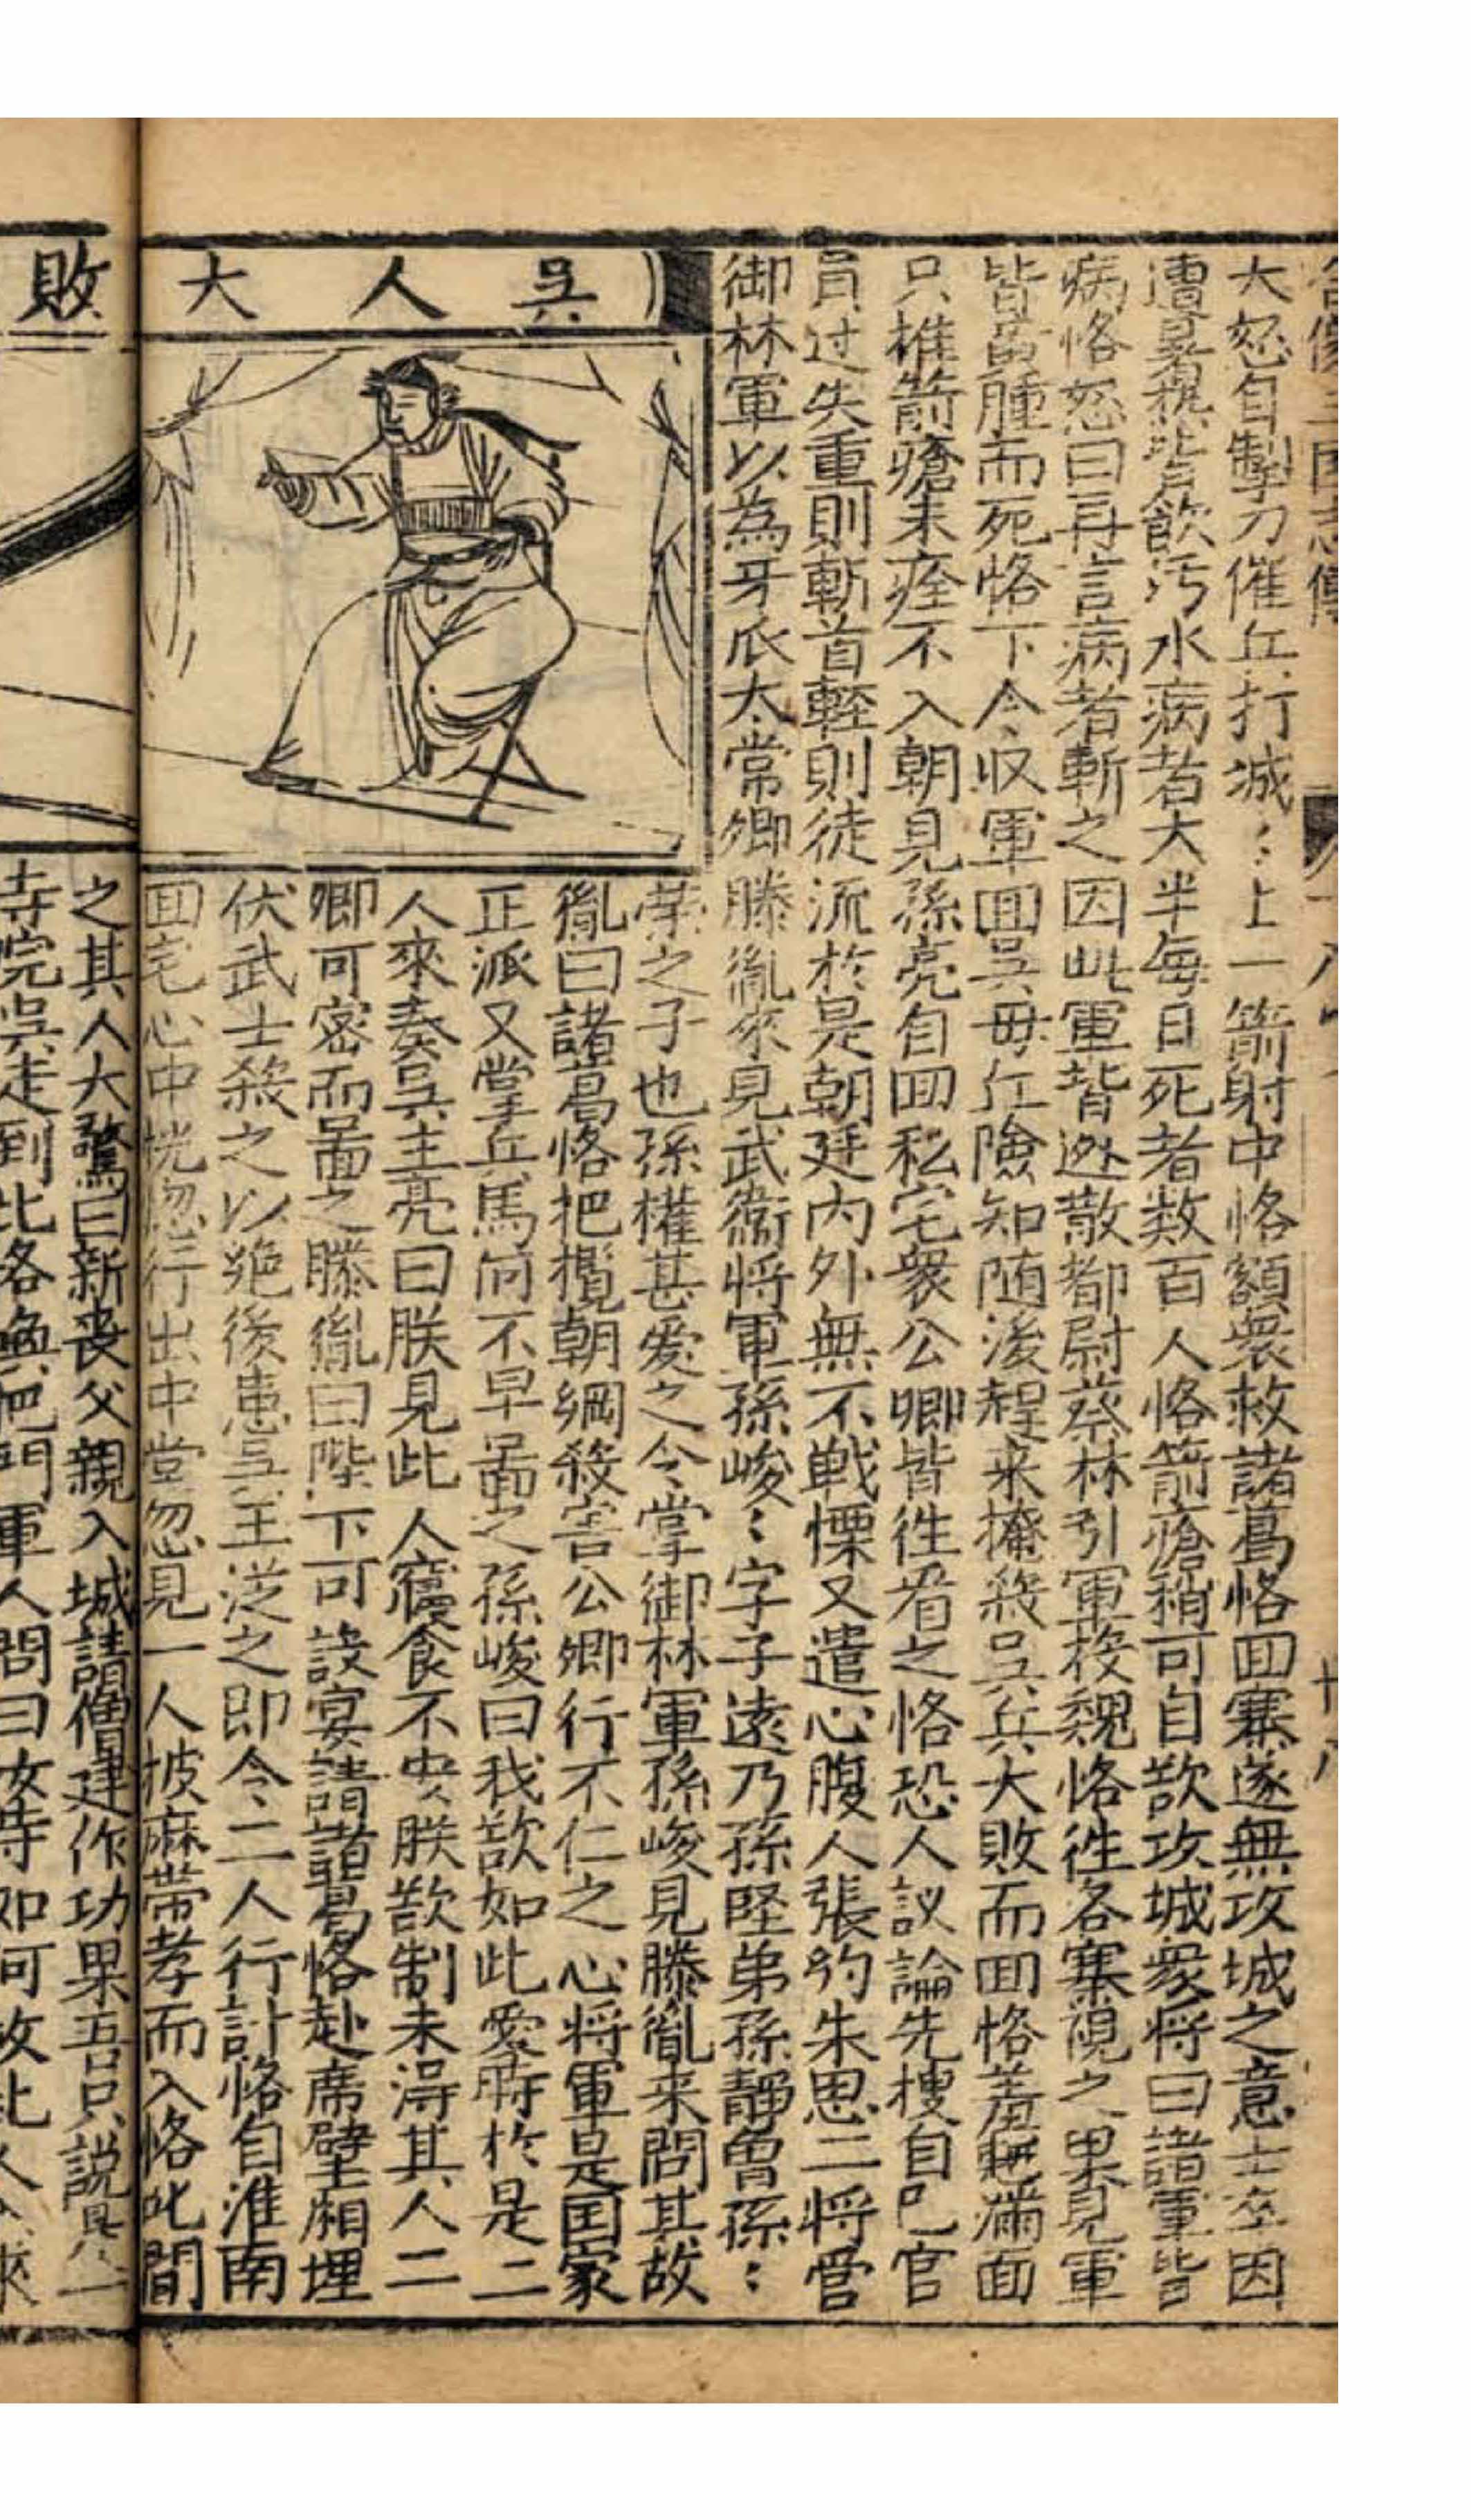 大怒自掣刀催丘打城〻上一箭射中恪額衆救諸葛恪囬寨遂無攻城之意士卒因
遭暑熱皆飲汚水病者大半每日死者数百人恪箭瘡稍可自欲攻城衆将曰諸軍皆
病恪怒曰再言病者斬之因此軍皆迯散都尉蔡林引軍投魏恪徃各寨視之果見軍
皆黃腫而死恪下令収軍囬吳毋丘險知随後趕来掩殺吳兵大敗而囬恪羞慚滿面
只推箭瘡未痊不入朝見孫亮自囬私宅衆公卿皆徃看之恪恐人議論先搜自己官
員过失重則斬首輕則徒流於是朝廷内外無不戦慄又遣心腹人張約朱恩二将管
御林軍以為牙爪太常卿滕胤來見武衞将軍孫峻〻字子遠乃孫堅弟孫靜曽孫〻
吳人大敗
榮之子也孫權甚愛之令掌御林軍孫峻見滕胤来問其故
胤曰諸葛恪把攬朝綱殺害公卿行不仁之心将軍是囯家
正派又掌丘馬何不早啚之孫峻曰我欲如此愛 於是二
人來奏吳主亮曰朕見此人寢食不安朕欲制未得其人二
卿可密而啚之滕胤曰陛下可設宴請諸葛恪赴席壁廂埋
伏武士殺之以絶後患吳王從之即令二人行計恪自淮南
囬宅心中恍忽行出中堂忽見一人披麻带孝而入恪叱問
之其人大驚曰新丧父親入城請僧建作功果吾只説是
寺院吳走到此恪喚把門軍人問曰汝等如何放此人入來